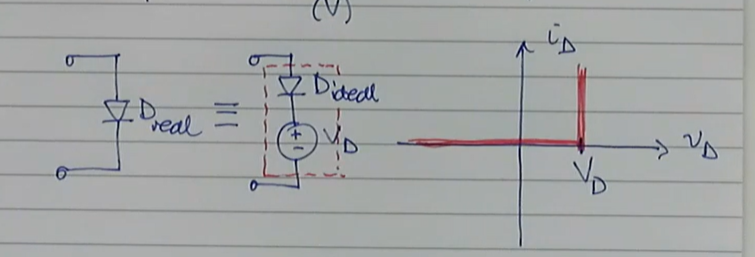 (V)
i_D
D_real ≡ D_ideal
+
-
V_D
v_D
V_D